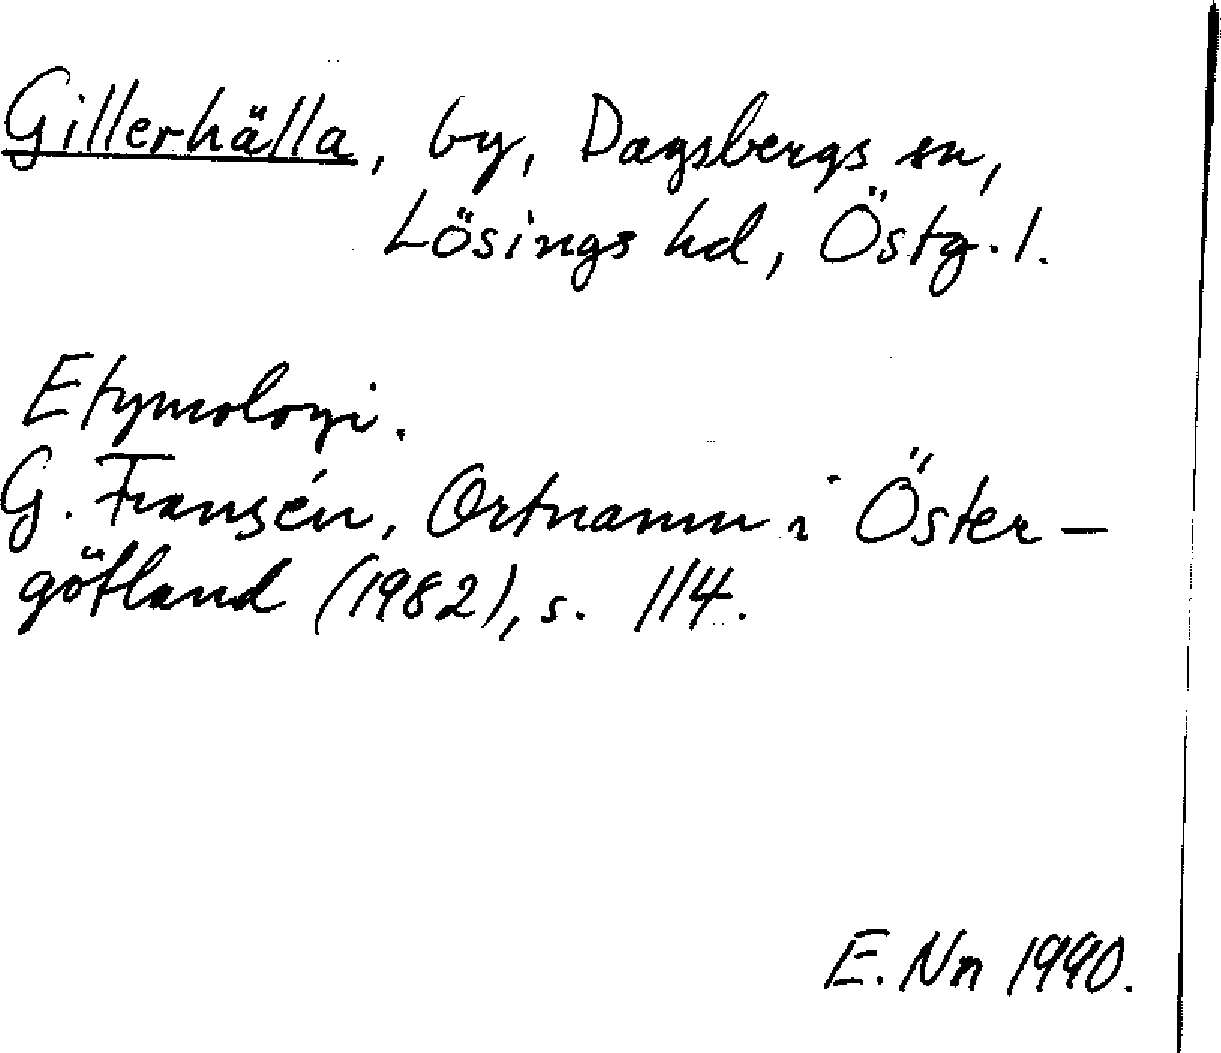 Gillerhälla, by, Dagsbergs sn,
Lösings hd, Östg. l.
Etymologi.
G. Fransén, Ortnamn i Öster-
götland (1982), s. 114.
E. Nn 1990.